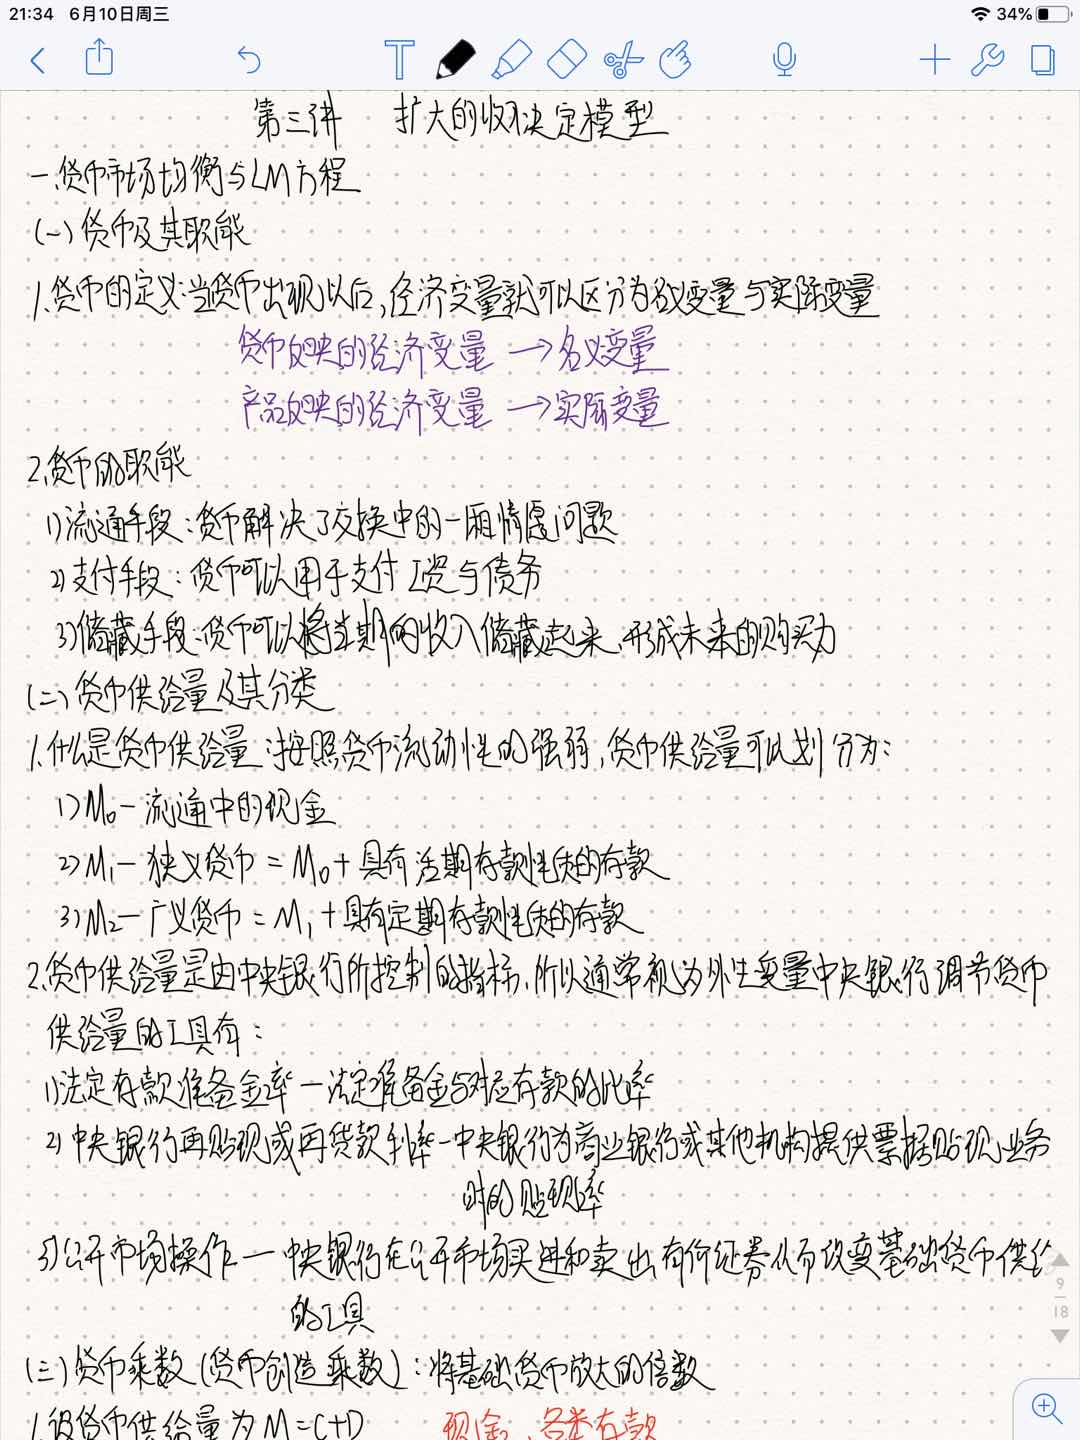 21:34 6月10日周三
34%
第三讲 扩大的收入决定模型
一.货币市场均衡与LM方程
(一)货币及其职能
1.货币的定义:当货币出现以后,经济变量就可以区分为名义变量与实际变量
货币反映的经济变量 →名义变量
产品反映的经济变量 →实际变量
2.货币的职能
1)流通手段:货币解决了交换中的一厢情愿问题
2)支付手段:货币可以用于支付工资与债务
3)储藏手段:货币可以将当期的收入储藏起来,形成未来的购买力
(二)货币供给量及其分类
1.什么是货币供给量:按照货币流动性的强弱,货币供给量可以划分为:
1)M₀—流通中的现金
2)M₁—狭义货币=M₀+具有活期存款性质的存款
3)M₂—广义货币=M₁+具有定期存款性质的存款
2.货币供给量是由中央银行所控制的指标,所以通常视为外生变量中央银行调节货币
供给量的工具有:
1)法定存款准备金率—法定准备金与对应存款的比率
2)中央银行再贴现或再贷款利率—中央银行为商业银行或其他机构提供票据贴现业务
时的贴现率
3)公开市场操作—中央银行在公开市场买进和卖出有价证券从而改变基础货币供给
的工具
9
18
(三)货币乘数(货币创造乘数):将基础货币放大的倍数
1.设货币供给量为M=C+D 现金、各类存款